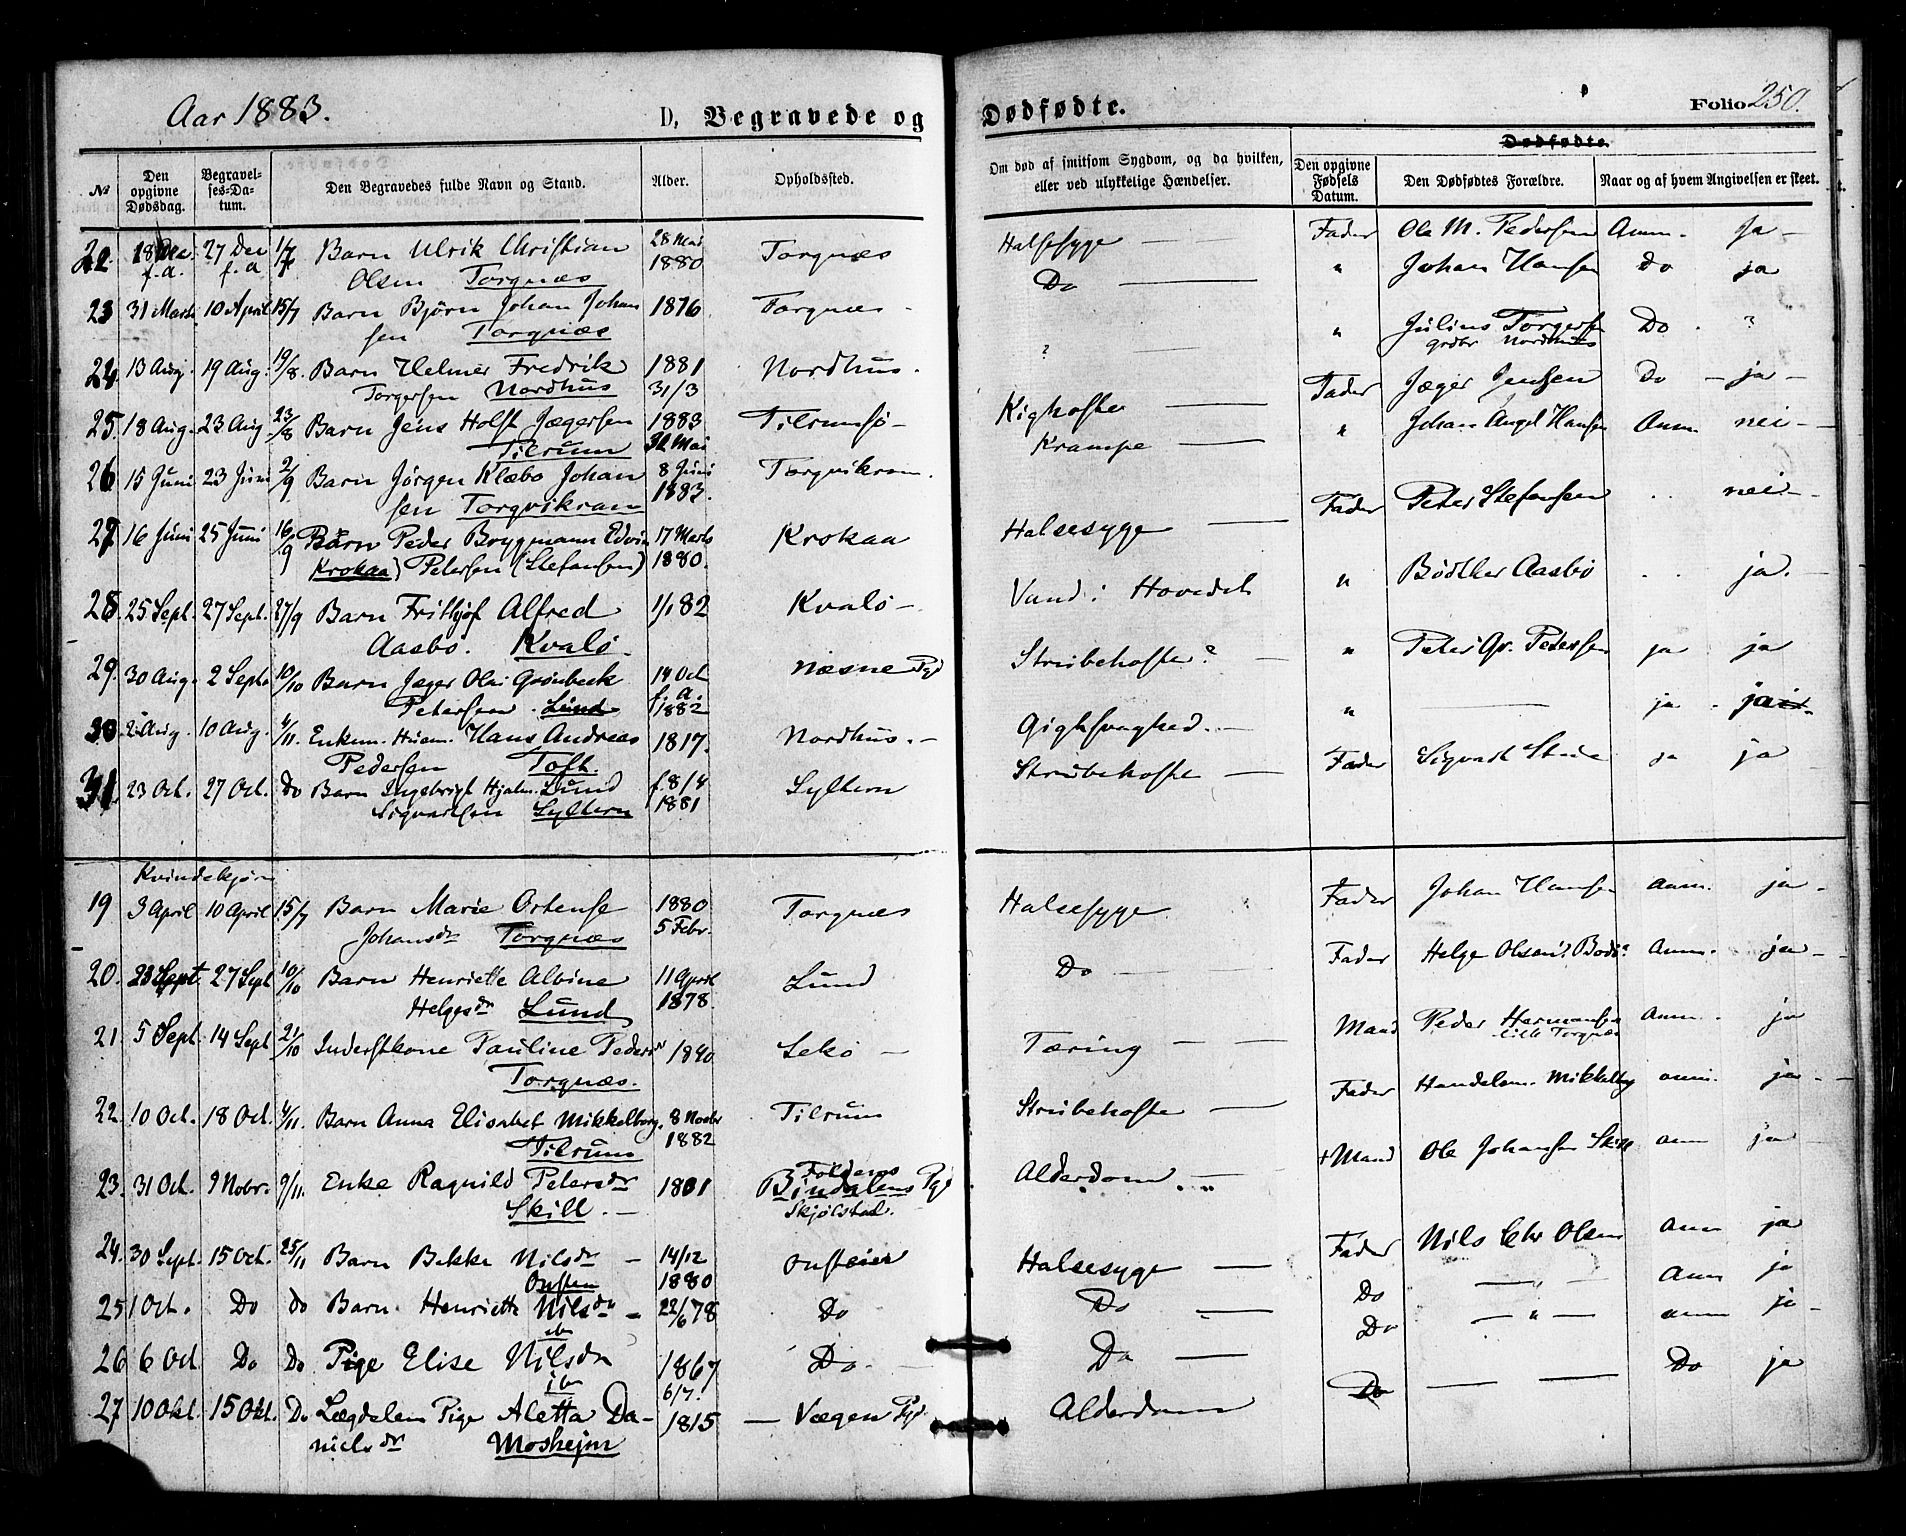 Aar 1883.
D, Begravede og
Dødfødte.
Folio 250.
№
Den opgivne Dødsdag.
Begravelses-Datum.
Den Begravedes fulde Navn og Stand.
Alder.
Opholdssted.
Om død af smitsom Sygdom, og da hvilken, eller ved ulykkelige Hændelser.
Den opgivne Fødsels Datum.
Dødfødte.
Den Dødfødtes Forældre.
Naar og af hvem Angivelsen er skeet.
22. 18 Dec 27 Dec 1/7 Barn Ulrik Christian 28 Mai Torgnæs Halsesyge — Fader Ole M. Pedersen Anm. Ja —
f.a. f.a Olsen Torgnæs 1880
23 31 Marts 10 April 15/7 Barn Bjørn Johan Johan 1876 Torgnæs - Do — " Johan Hansen Do ja
sen Torgnæs
24. 13 Aug. 19 Aug. 19/8. Barn Helmer Fredrik 1881 Nordhus. ? " Julius Torgersen Do . ?
Torgersen Nordhus 31/3 Nordhus
25. 18 Aug. 23 Aug. 23/8 Barn Jens Holst Jægersen 1883 Tilrumsø - Kighoste — Fader Jæger Jensen Do — ja —
Tilrum Mai
26 15 Juni 23 Juni 2/9 Barn Jørgen Klæbo Johan 8 Juni Torgvikran. Krampe — " Johan Angel Hansen Anm nei —
sen Torgvikran 1883.
27 16 Juni 25 Juni 16/9 Barn Peder Brygmann Edvin 17 Marts Krokaa Halsesyge — Fader Peter Stefansen . . nei -
Krokaa) Petersen (Stefansen) 1880.
28. 25 Sept. 27 Sept. 27/9 Barn Frithjof Alfred 1/1 82 Kvalø — Vand i Hovedet " Bødker Aasbø . . ja. —
Aasbø. Kvalø.
29. 30 Aug. 2 Septb 10/10 Barn Jæger Olai Grønbeck 14 Oct Næsne Pgd Strubehoste? — " Peter Gr. Petersen ja ja
Petersen. Lund f. a. 1882
30 2 Aug. 10 Aug. 4/11. Enkem. Husm. Hans Andreas 1817. Nordhus. — Gigtsvaghed. — " — ja .
Pedersen Toft.
31. 23 Oct. 27 Oct. Do Barn Ingebrigt Hjalm. Lund f. 8/4 Syltern Strubehoste — Fader Sigvart ja ja
Sigvartsen Syltern 1881
Kvindekjøn
19 3 April 10 April 15/7 Barn Marie Ortense 1880 Torgnæs Halsesyge Fader Johan Hansen anm. ja -
Johansdr Torgnæs 5 Febr.
20. 23 Sept 27 Sept 10/10 Barn Henriette Albine 11 April Lund Do — Fader Helge Olsen Bodø? Anm. ja —
Helgesdr Lund 1878.
21. 5 Sept. 14 Sept 21/10 Inderstkone Pauline Pedersdr 1840 Sekø — Tæring — Mand Peder Hermansen Anm. ja
Torgnæs. Lille Torgnæs
22. 10 Oct. 18 Oct. 4/11. Barn Anna Elisabet Mikkelborg. 8 Novbr Tilrum Strubehoste — Fader Handelsm. Mikkelborg anm. ja -
Tilrum 1882
23. 31 Oct. 9 Nobr. 9/11. Enke Ragnild Petersdr 1801 Foldens Alderdom. — + Mand Ole Johansen Skill anm ja —
Skill. — Bindalens Pgd
Skjølstad.
24. 30 Sept. 15 Oct. 25/11 Barn Bekke Nilsdr — 14/12 Onsteier Halsesyge — Fader Nils Chr Olsen Anm ja
Onsten 1880
25 1 Oct. Do do Barn. Henriette Nilsdr — 22/6 78 Do Do — Do — " — Anm ja
ibn
26 6 Oct. Do Do Pige Elise Nilsdr 1867 Do. Do — Do — " — anm ja —
ibn 6/7.
27 10 Okt. 15 Okt. Do Lægdslem Pige Aletta Da- 1815 — Vægen Pgd. Alderdom Do — Do ja
nielsdr Mosheim